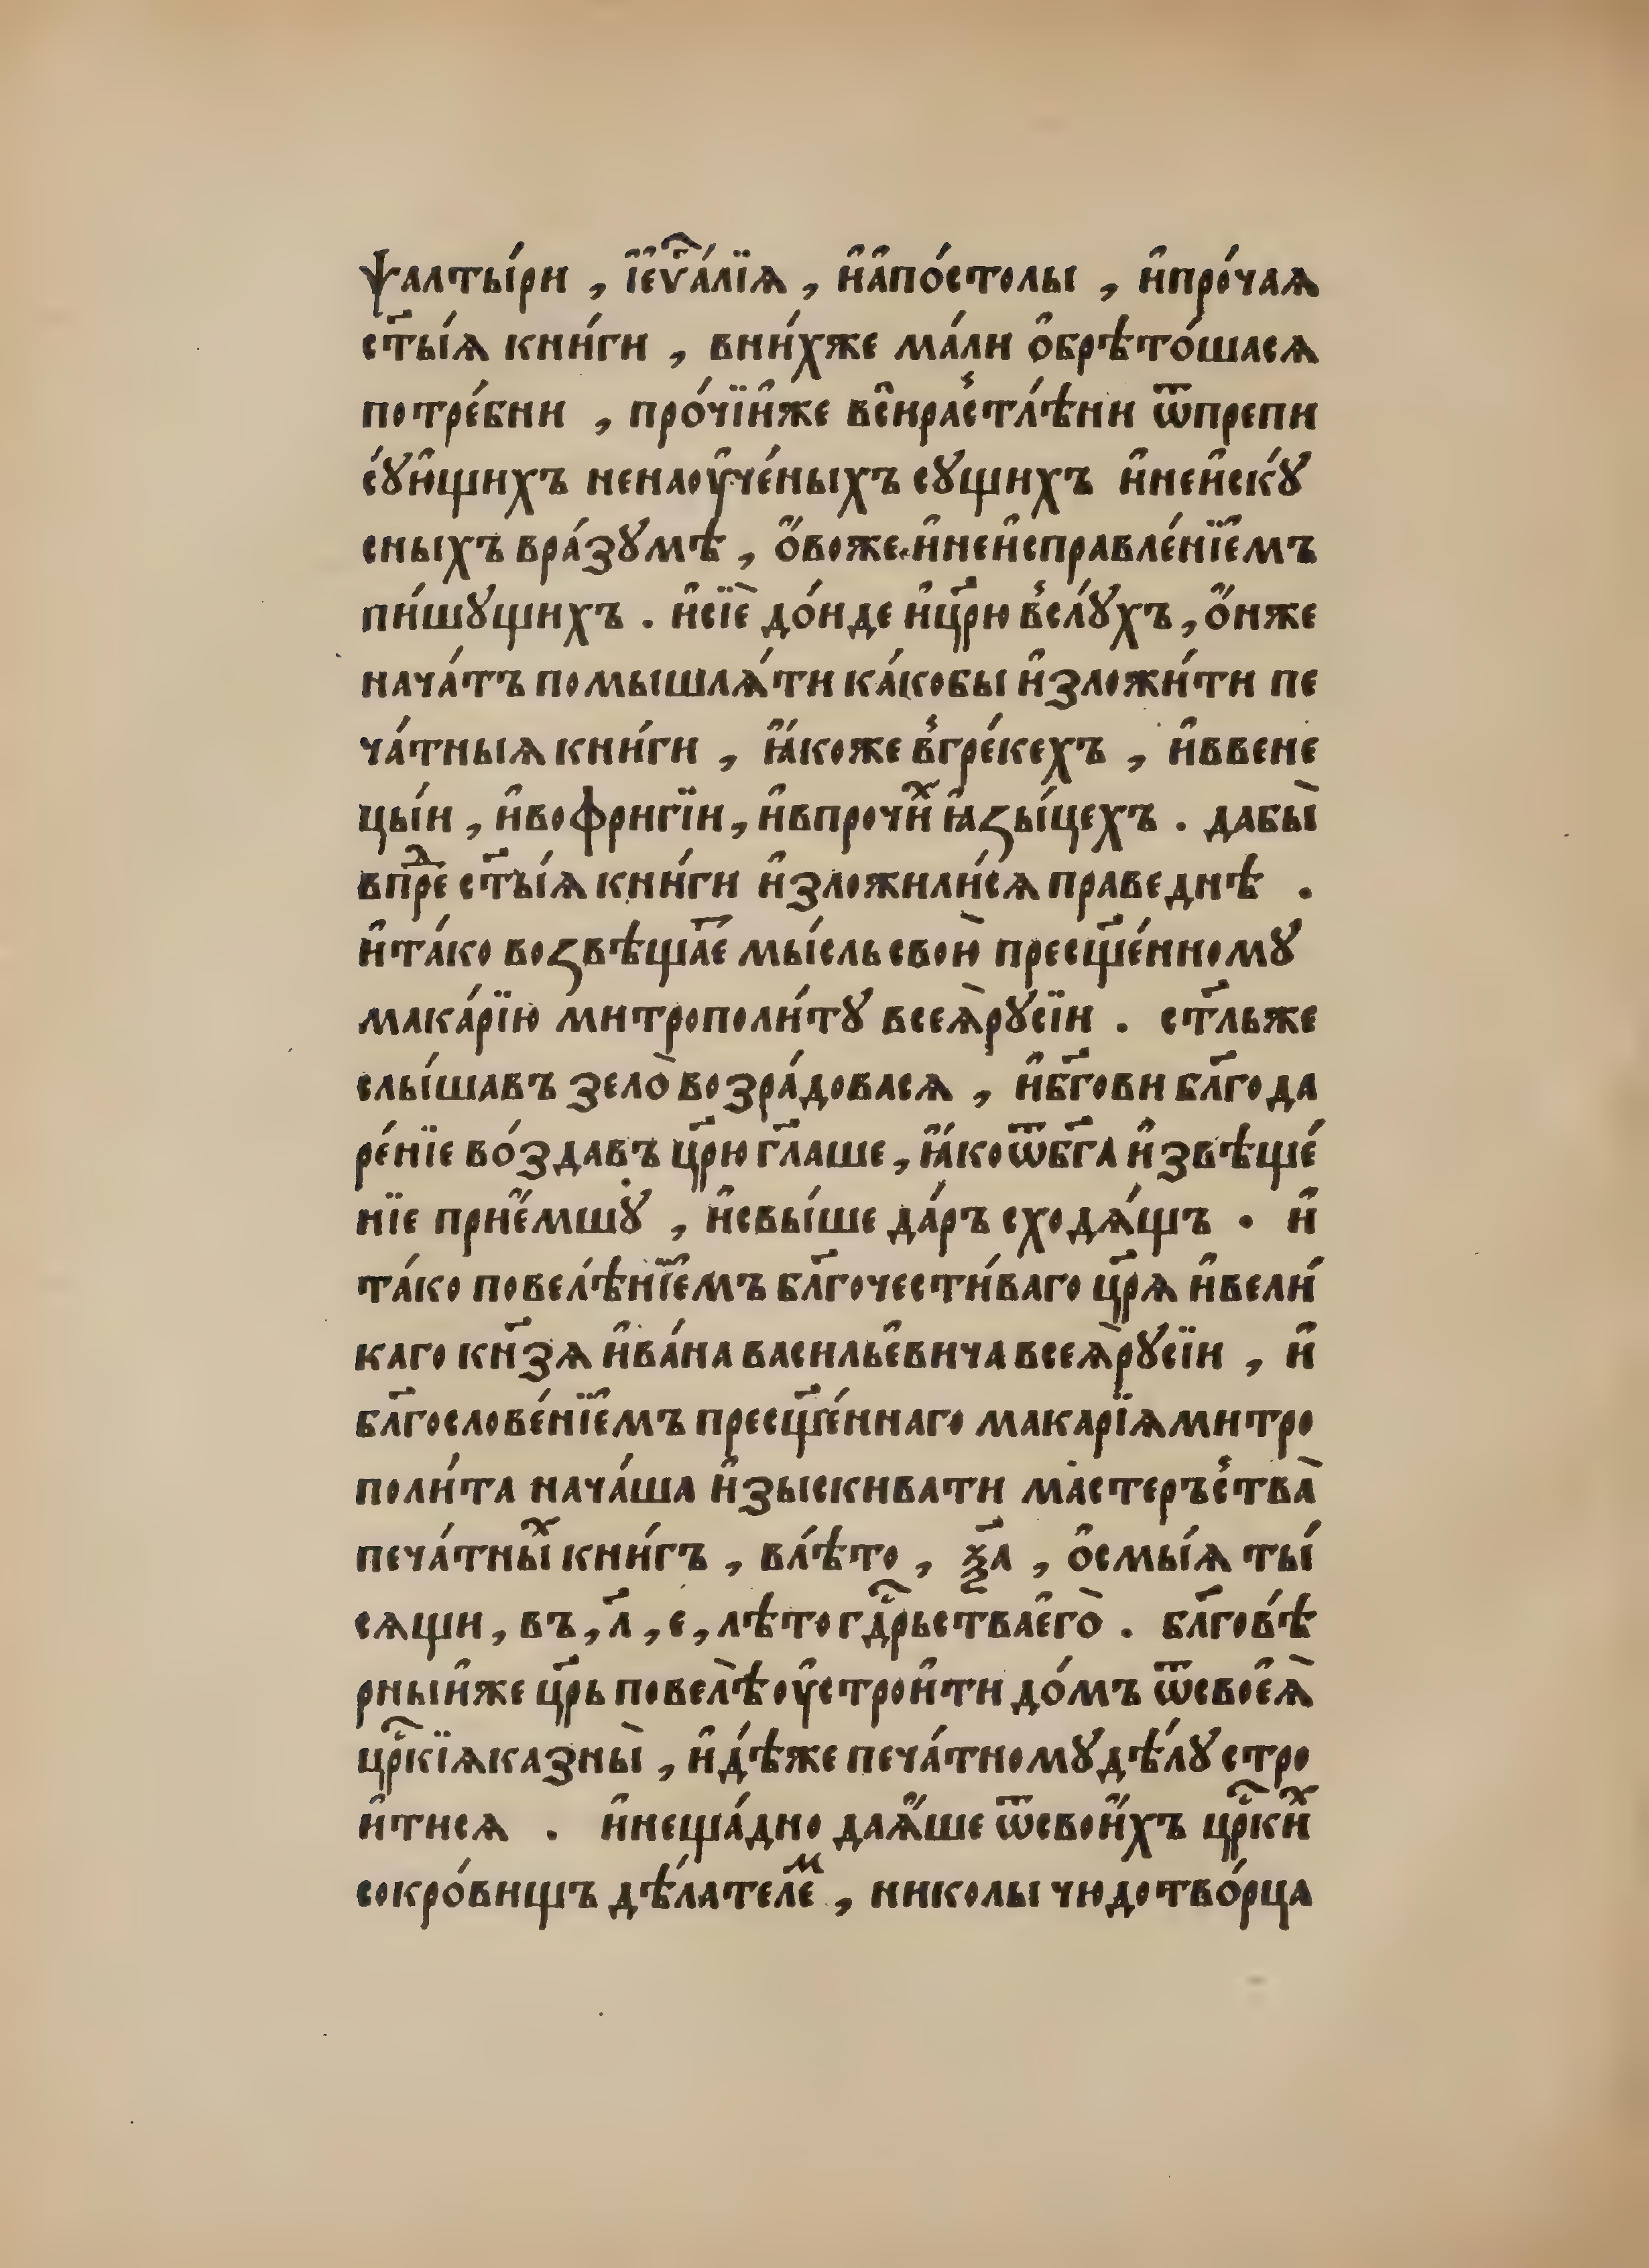 ѱалты́ри , і҆є҆ѵⷢ҇а́лїѧ , и҆а҆по́столы , и҆про́чаѧ
ст҃ы́ѧ кни́ги , вни́хже ма́ли ѡ҆брѣто́шасѧ
потре́бни , про́чїи҆же всѝраⷭ҇тлѣ́ни ѿпрепи
сꙋ́ющихъ ненаоу҆че́ныхъ сꙋщихъ и҆неи҆скꙋ́
сныхъ вра́зꙋмѣ , ѻ҆́воже и҆неи҆справле́нїє҆мъ
пи́шꙋщихъ . и҆сїѐ до́иде и҆цр҃ю в̾слꙋ́хъ , ѻ҆́нже
нача́тъ помышлѧ́ти ка́кобы и҆зложи́ти пе
ча́тныѧ кни́ги , ꙗ҆́коже в̾гре́кехъ , и҆ввене
цы́и , и҆вофригїи , и҆впрочиⷯ ꙗ҆ꙁы́цехъ . дабы̀
впреⷣ ст҃ы́ѧ кни́ги и҆зложили́сѧ праведнѣ .
и҆та́ко воꙁвѣщаⷮе мы́сль свою̀ пресщ҃е́нномꙋ
мака́рїю митрополи́тꙋ всеѧ̀рꙋсїи . ст҃льже
слы́шавъ зело̀ возра́довасѧ , и҆бг҃ови бл҃года
ре́нїе во́здавъ цр҃ю гл҃аше , ꙗ҆́ко ѿбг҃а и҆звѣще́
нїе прие҆́мшꙋ , и҆свы́ше да́ръ сходѧ́щъ . и҆
та́ко повелѣ́нїє҆мъ бл҃гочести́ваго цр҃ѧ и҆вели́
каго кн҃зѧ и҆ва́на васильє҆вича всеѧ̀рꙋсїи , и҆
бл҃гослове́нїє҆мъ пресщ҃е́ннаго макарїѧ митро
поли́та нача́ша и҆зыскивати мастеръⷭ҇тва̀
печа́тныⷯ кни́гъ , влѣ́то , ѯ҃а , ѻ҆смы́ѧ ты́
сѧщи , въ , л҃ , є , лѣто гдⷭ҇рьстває҆го̀ . бл҃говѣ́
рныи҆же цр҃ь повелѣ̀ оу҆строи҆ти до́мъ ѿсвоє҆ѧ̀
црⷭ҇кїѧ казны̀ , и҆дѣ́же печа́тномꙋ дѣ́лꙋ стро
и҆тисѧ . и҆нещадно даѧ҆́ше ѿсвои҆́хъ црⷭ҇киⷯ
сокро́вищъ дѣ́лателеⷨ , николы чюдотво́рца